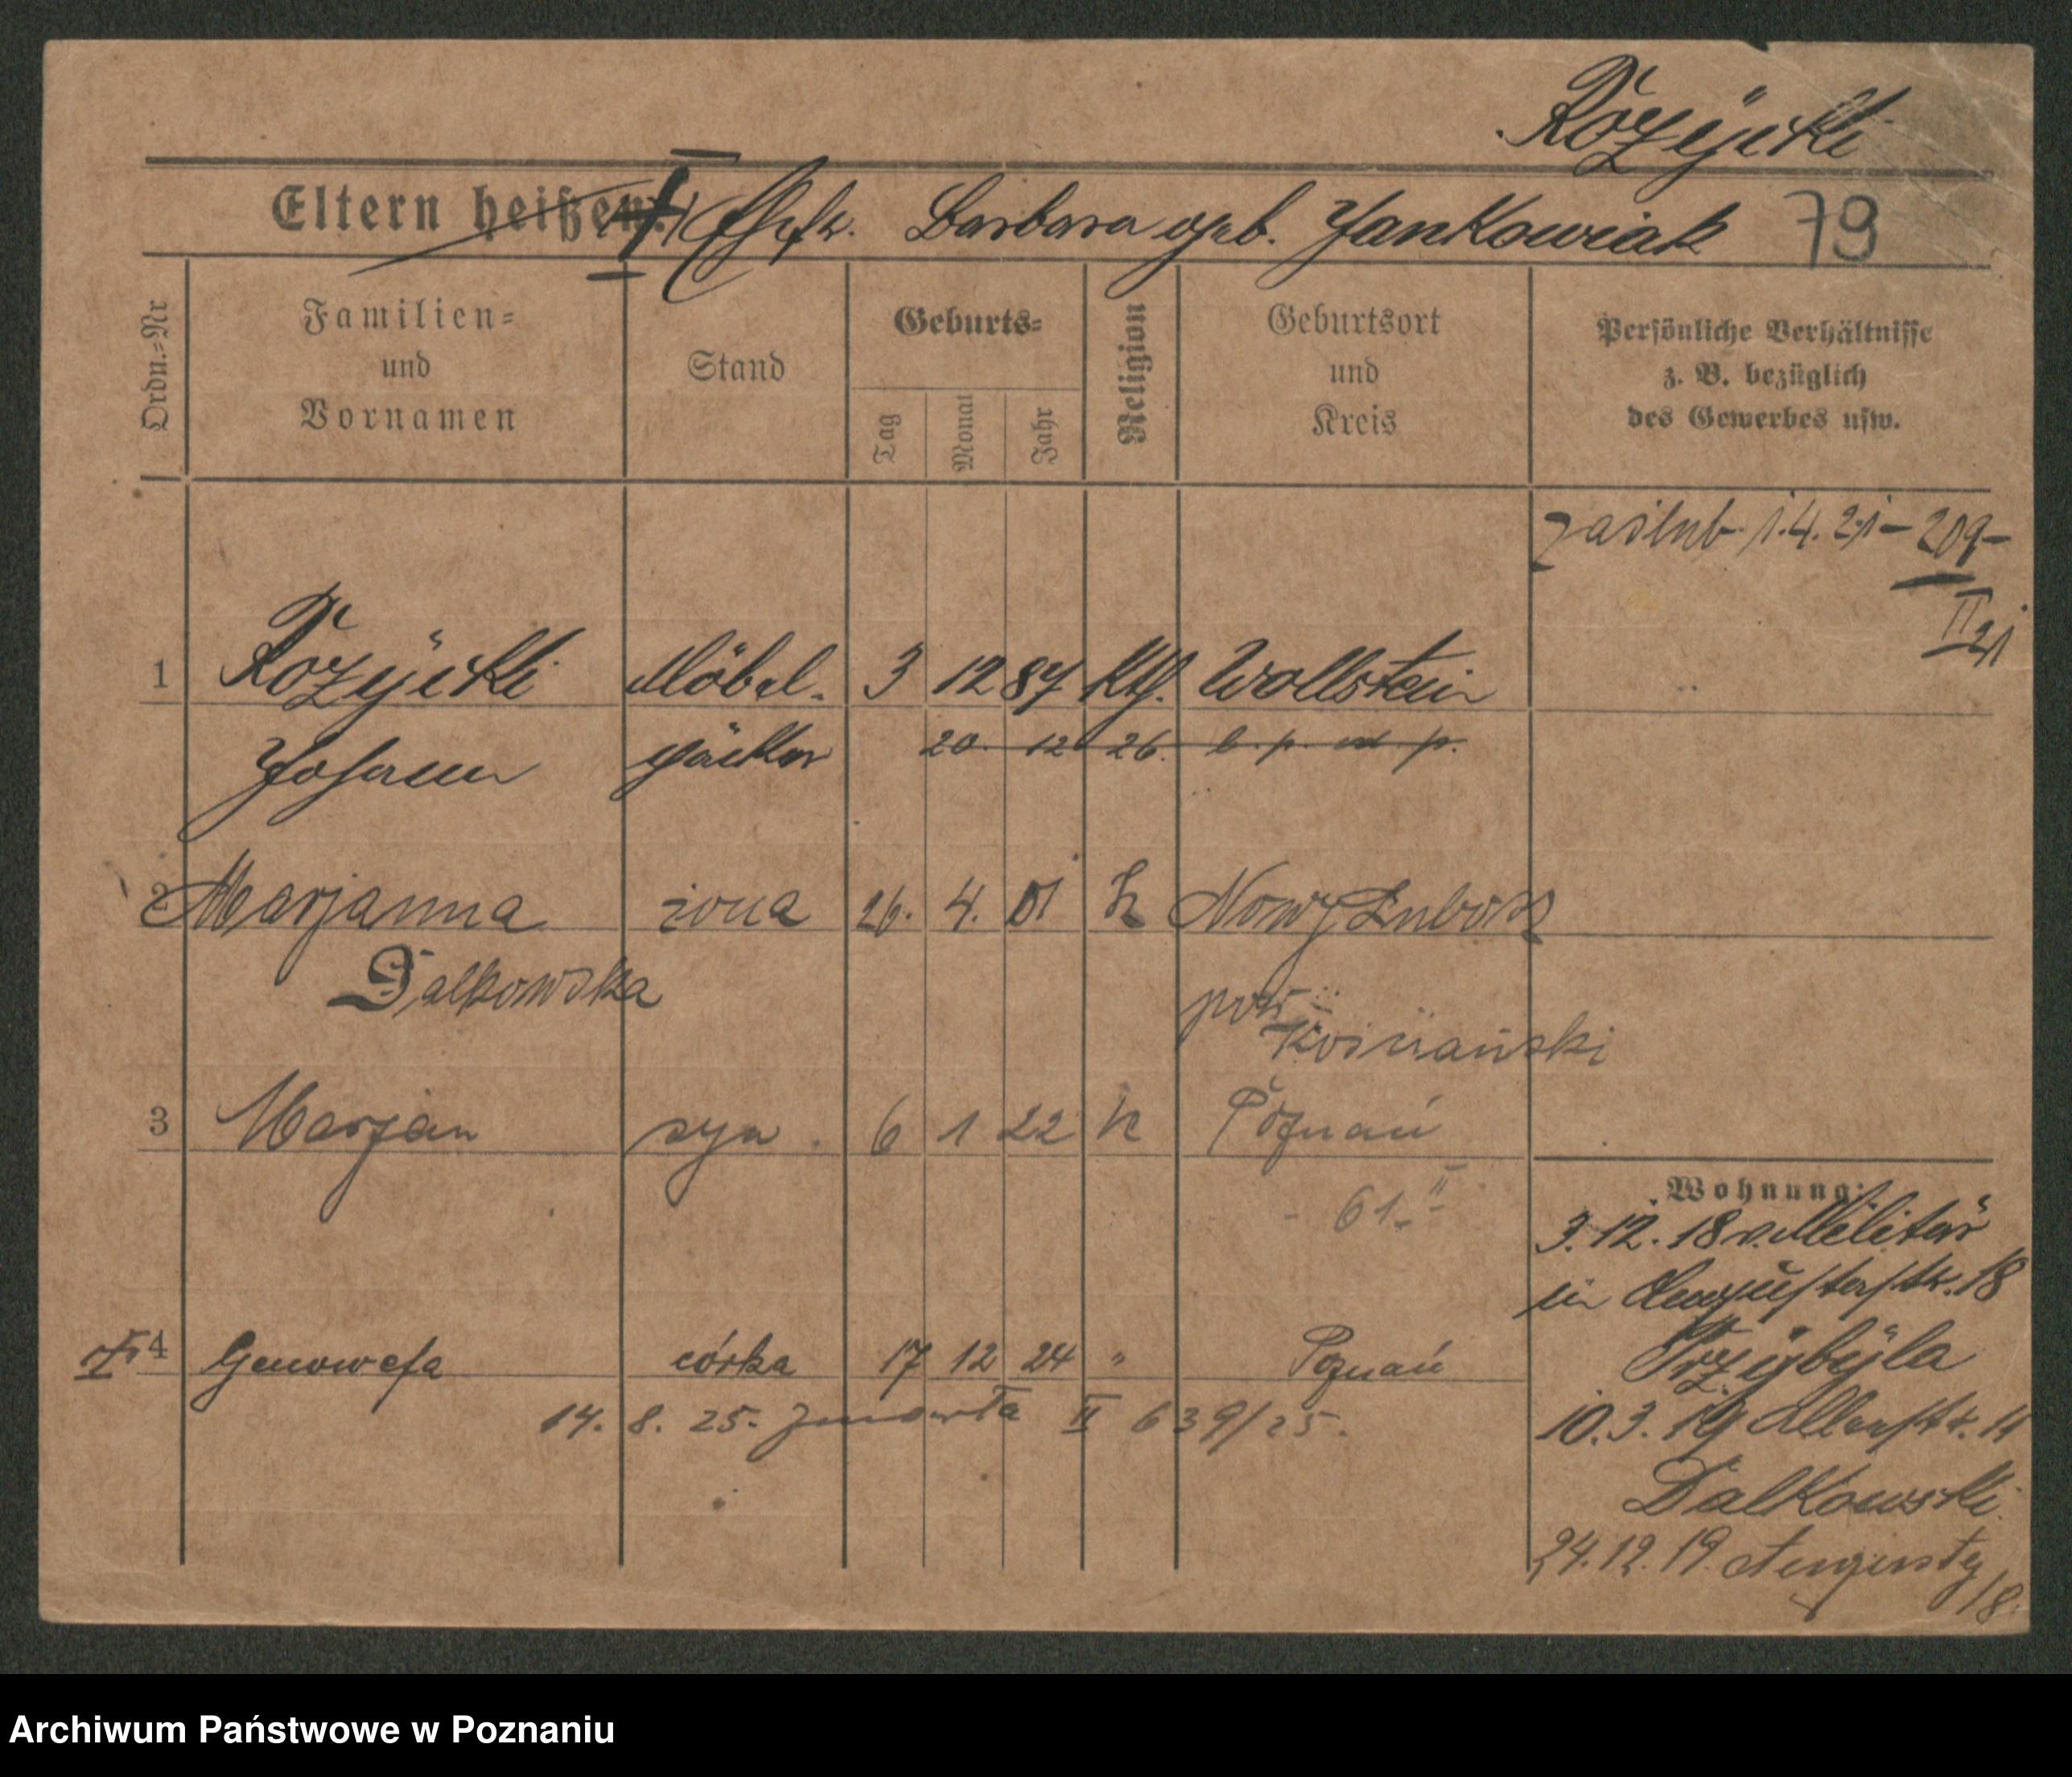 Rozÿcki
Eltern heißen: Ehefr. Barbara geb. Jankowiak 79
Ordn.-Nr
Familien-
und
Vornamen
Stand
Geburts-
Tag
Monat
Jahr
Religion
Geburtsort
und
Kreis
Persönliche Verhältnisse
z. B. bezüglich
des Gewerbes usw.
zaślub. 1.4.21 – 209 –
II 21
1 Rozÿcki Möbel- 3 12 87 Kth. Wollstein
Johann packer 20. 12 26.
2 Marjanna żona 26. 4. 01 k Nowy Lubosz
Dalkowska pow.
Kościański
3 Marjan syn 6 1 22 k Poznań
- 61. II -
Wohnung:
3.12.18 v. Militär
in Augustastr. 18
Przÿbÿla
4 Genowefa córka 17 12 24 " Poznań
14. 8. 25. zmarła II 639/25.
10.3.19
Dalkowski.
24.12.19. Augusty
18.
Archiwum Państwowe w Poznaniu